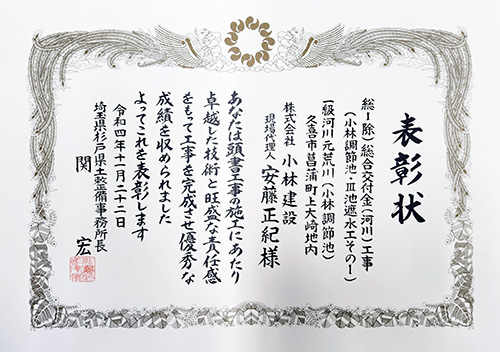 表彰状
総Ⅰ除)総合交付金(河川)工事
(小林調節池・Ⅲ池遮水工その1)
一級河川元荒川(小林調節池)
久喜市菖蒲町上大崎地内
株式会社 小林建設
現場代理人 安藤正紀様
あなたは頭書工事の施工にあたり
卓越した技術と旺盛な責任感
をもって工事を完成させ優秀な
成績を収められました
よってこれを表彰します
令和四年十一月二十二日
埼玉県杉戸県土整備事務所長
関 宏